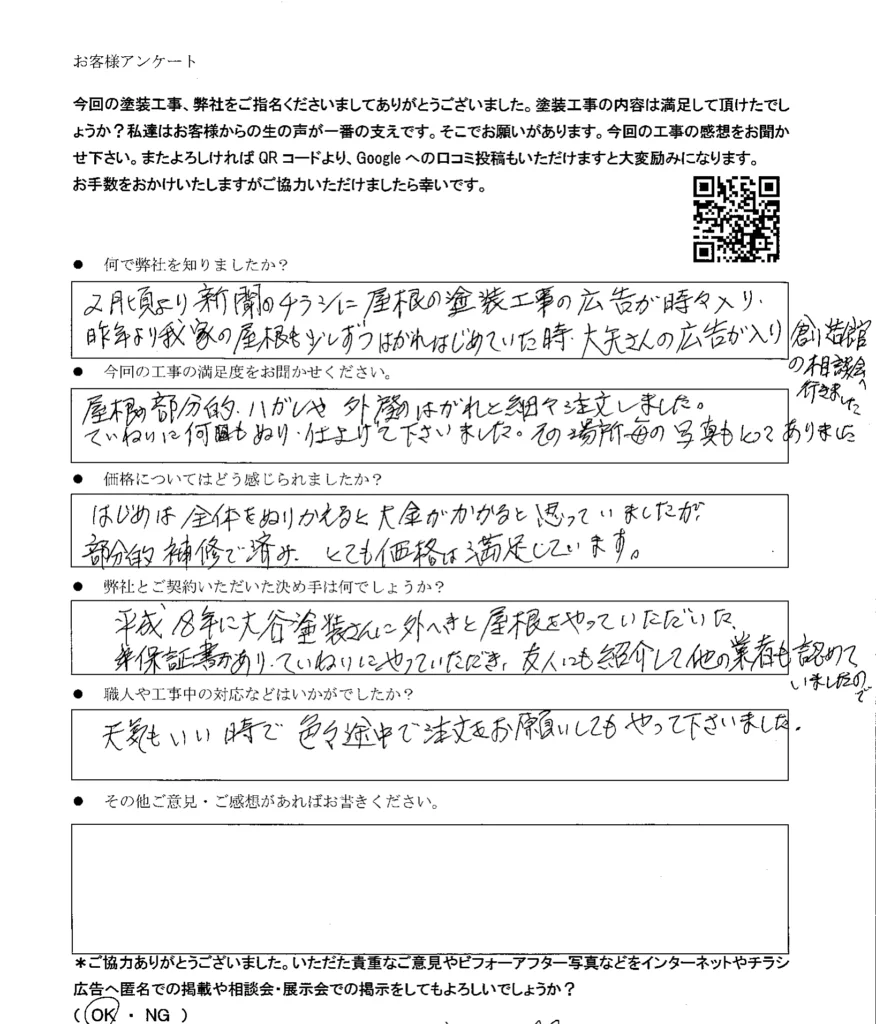 お客様アンケート
今回の塗装工事、弊社をご指名くださいましてありがとうございました。塗装工事の内容は満足して頂けたでし
ょうか？私達はお客様からの生の声が一番の支えです。そこでお願いがあります。今回の工事の感想をお聞か
せ下さい。またよろしければ QR コードより、Google への口コミ投稿もいただけますと大変励みになります。
お手数をおかけいたしますがご協力いただけましたら幸いです。
● 何で弊社を知りましたか？
2月頃より新聞のチラシに屋根の塗装工事の広告が時々入り、
昨年より我家の屋根も少しずつはがれはじめていた時、大矢さんの広告が入り
創造館
の相談会へ
行きました
● 今回の工事の満足度をお聞かせください。
屋根の部分的、ハガレや外壁のはがれと細々注文しました。
ていねいに何回もぬり、仕上げて下さいました。その場所毎の写真もとってありました
● 価格についてはどう感じられましたか？
はじめは全体をぬりかえると大金がかかると思っていましたが、
部分的補修で済み、とても価格は満足しています。
● 弊社とご契約いただいた決め手は何でしょうか？
平成18年に大谷塗装さんに外へきと屋根をやっていただいた、
保証書があり、ていねいにやっていただき、友人にも紹介して他の業者も認めて
いましたので
● 職人や工事中の対応などはいかがでしたか？
天気もいい時で色々途中で注文をお願いしてもやって下さいました。
● その他ご意見・ご感想があればお書きください。
＊ご協力ありがとうございました。いただた貴重なご意見やビフォーアフター写真などをインターネットやチラシ
広告へ匿名での掲載や相談会・展示会での掲示をしてもよろしいでしょうか？
( OK ・ NG )